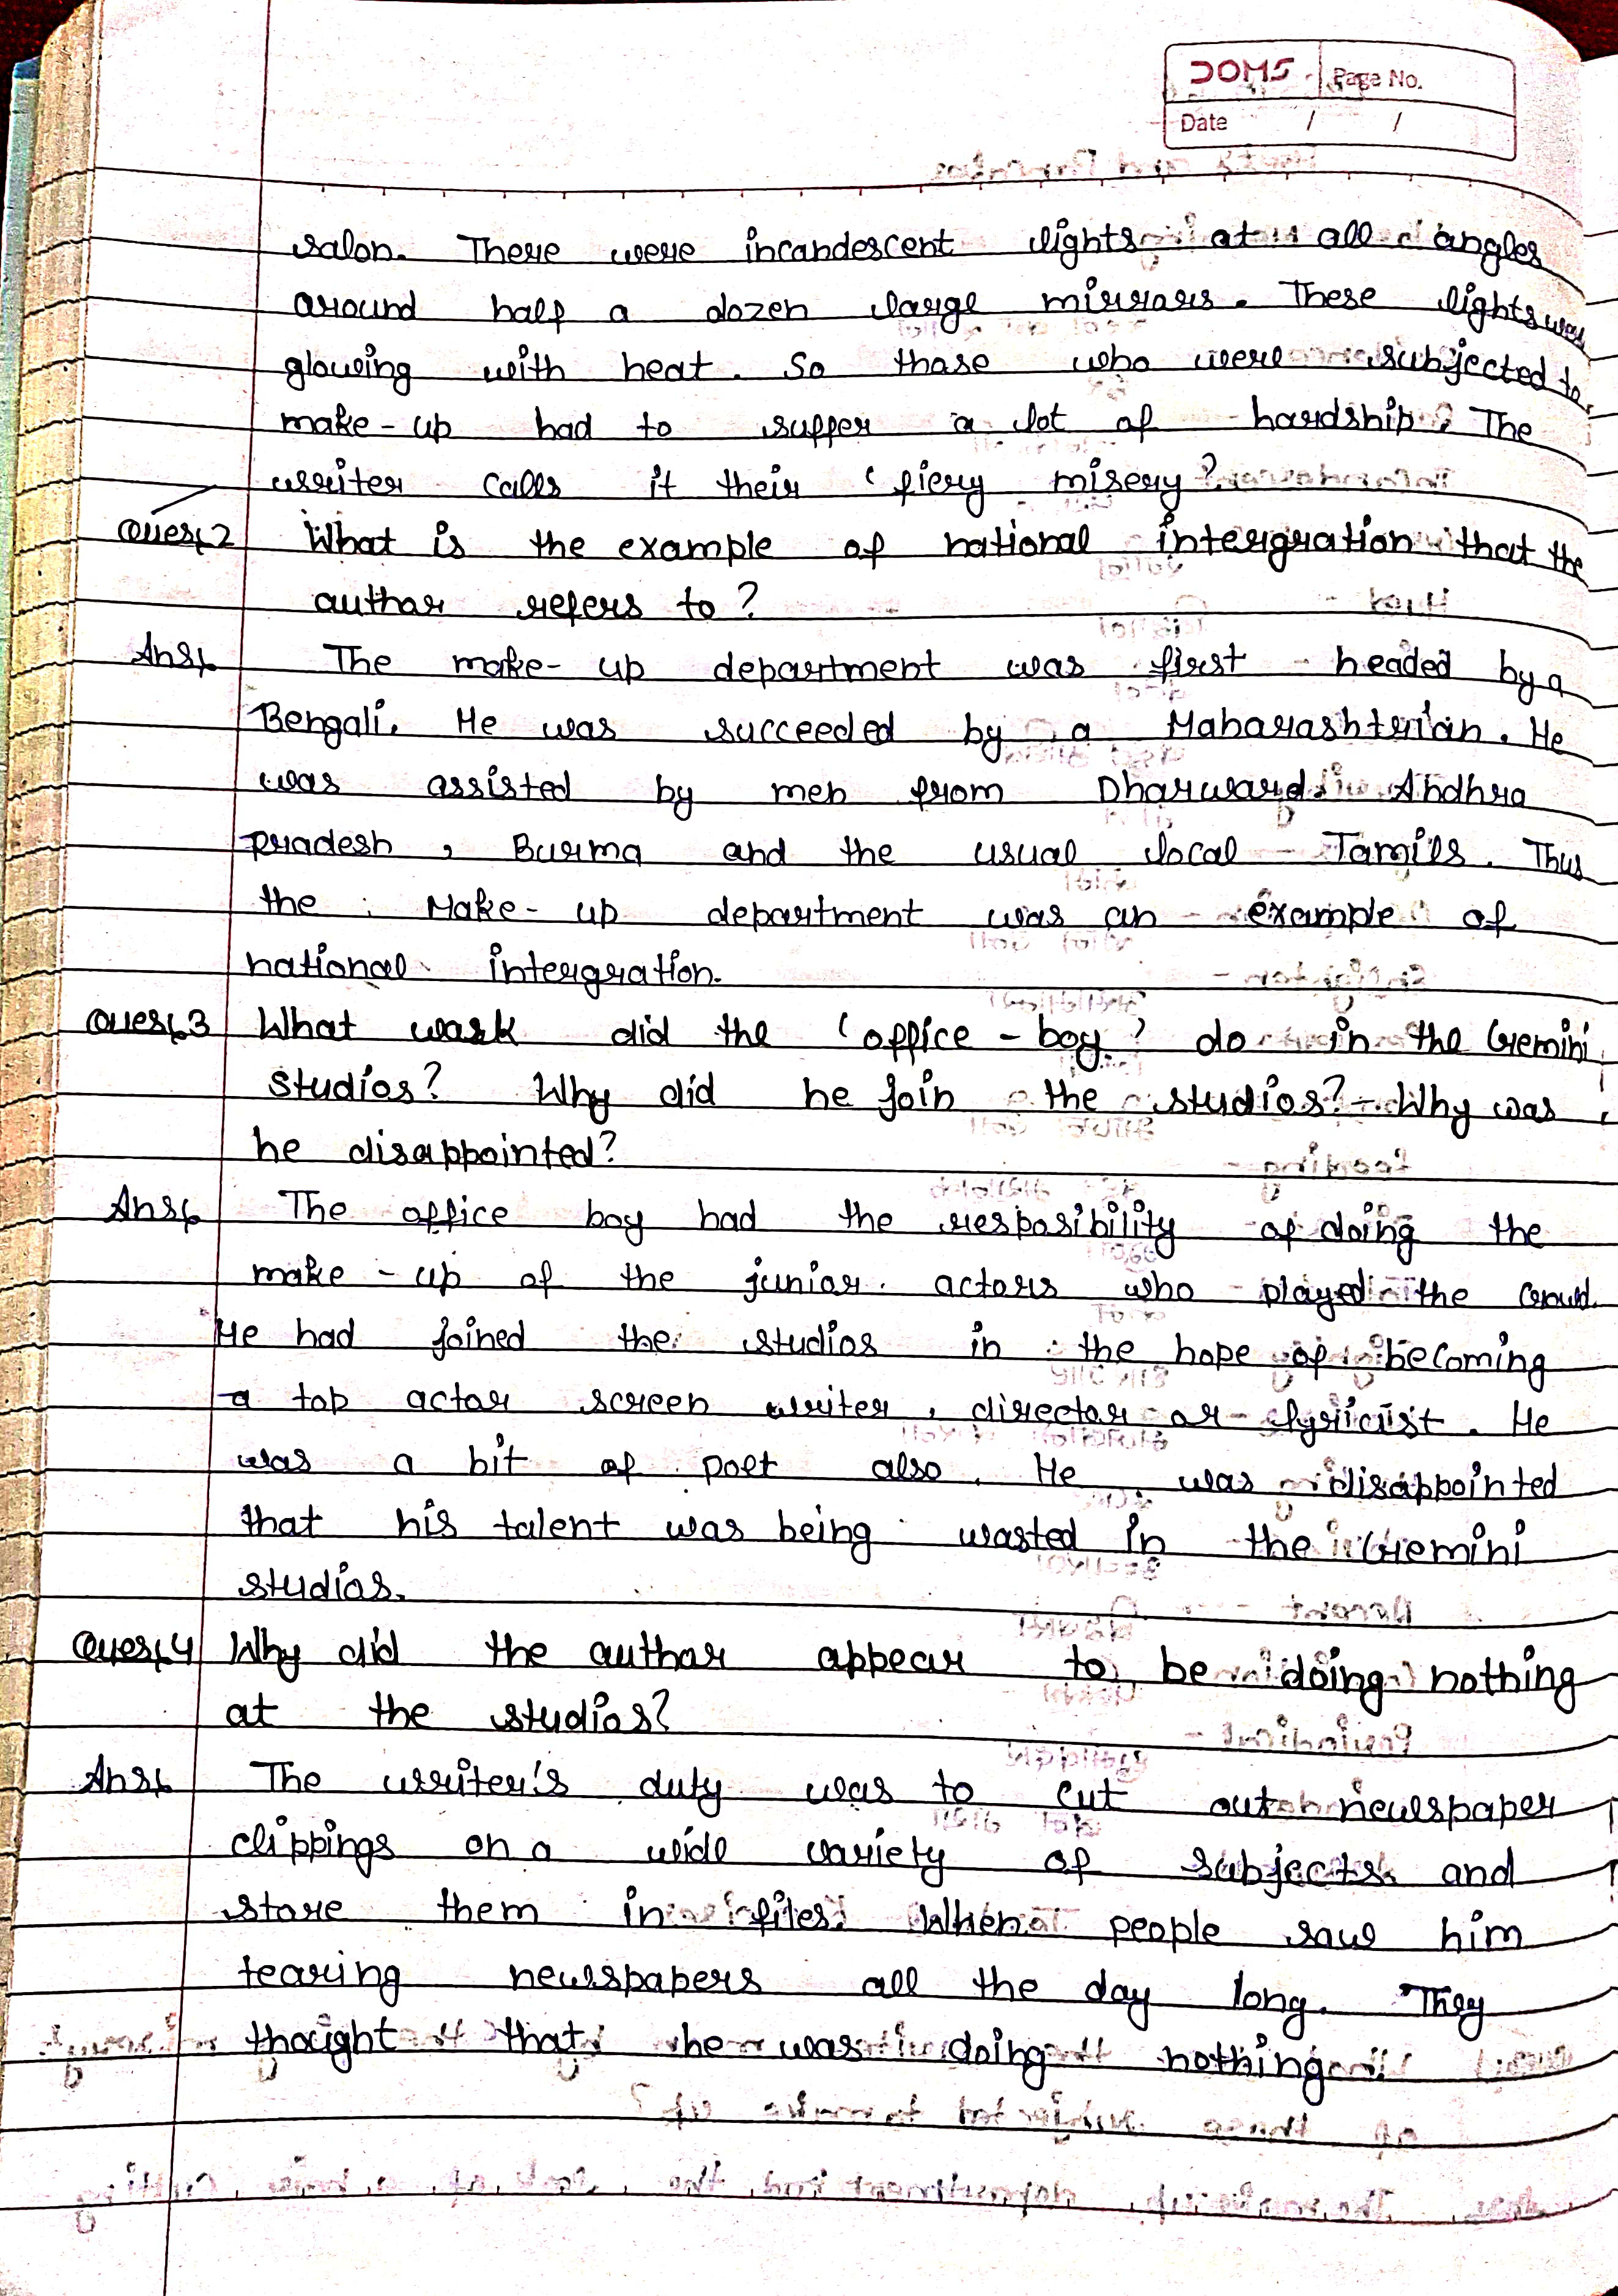 DOMS Page No.
Date / /
salon. There were incandescent lights at all angles
around half a dozen large mirrors. These lights was
glowing with heat. So those who were subjected to
make-up had to suffer a lot of hardship. The
writer calls it their 'fiery misery'.
Ques.2 What is the example of national intergration that the
author refers to?
Ans. The make-up department was first headed by a
Bengali. He was succeeded by a Maharashtrian. He
was assisted by men from Dharward. Andhra
pradesh, Burma and the usual local Tamils. Thus
the Make-up department was an example of
national intergration.
Ques.3 What work did the 'office-boy' do in the Gemini
studios? Why did he join the studios? Why was
he disappointed?
Ans. The office boy had the resposibility of doing the
make-up of the junior actors who played the crowd.
He had joined the studios in the hope of becoming
a top actor screen writer, director or lyricist. He
was a bit of poet also. He was disappointed
that his talent was being wasted in the Gemini
studios.
Ques.4 Why did the author appear to be doing nothing
at the studios?
Ans. The writer's duty was to cut out newspaper
clippings on a wide variety of subjects and
store them in files. When people saw him
tearing newspapers all the day long. They
thought that he was doing nothing.